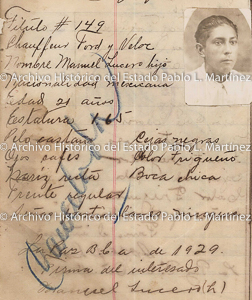 Título # 149
Chauffeur Ford y Veloc
Nombre Manuel Lucero hijo
Nacionalidad Mexicana
Edad 21 años
© Archivo Histórico del Estado Pablo L. Martínez
Estatura 1.65
Pelo castaño Cejas negras
Ojos cafés Color Trigueño
© Archivo Histórico del Estado Pablo L. Martínez
Nariz recta Boca chica
Frente regular
© Archivo Histórico del Estado Pablo L. Martínez
La Paz B. Cfa. de 1929.
Firma del interesado
Manuel Lucero (h)
© Archivo Histórico del Estado Pablo L. Martínez